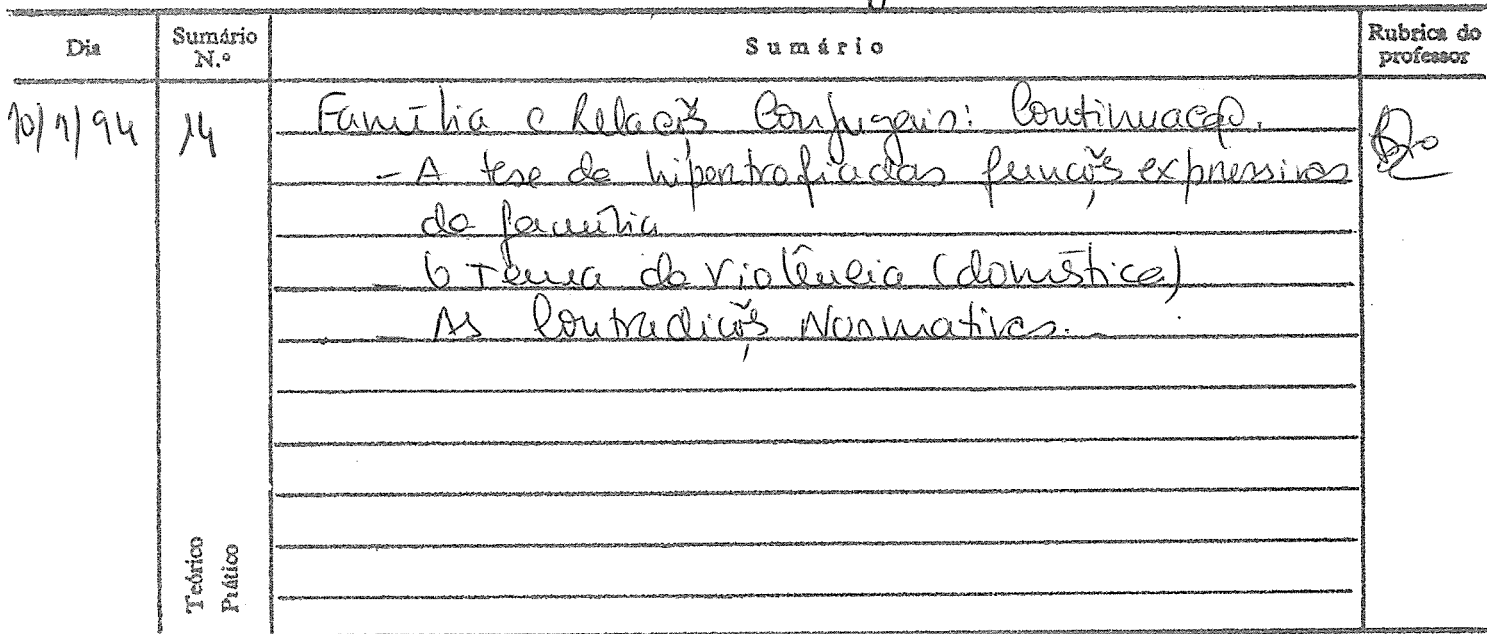 Dia Sumário N.º Sumário Rubrica do professor
10/1/94 14 Família e Relações Conjugais: Continuação.
- A tese da hipertrofia das funções expressivas
da família
- O Tema da Violência (doméstica)
- As Contradições Normativas.
Teórico
Prático